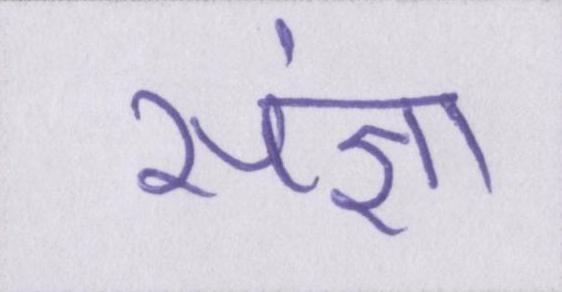 संज्ञा